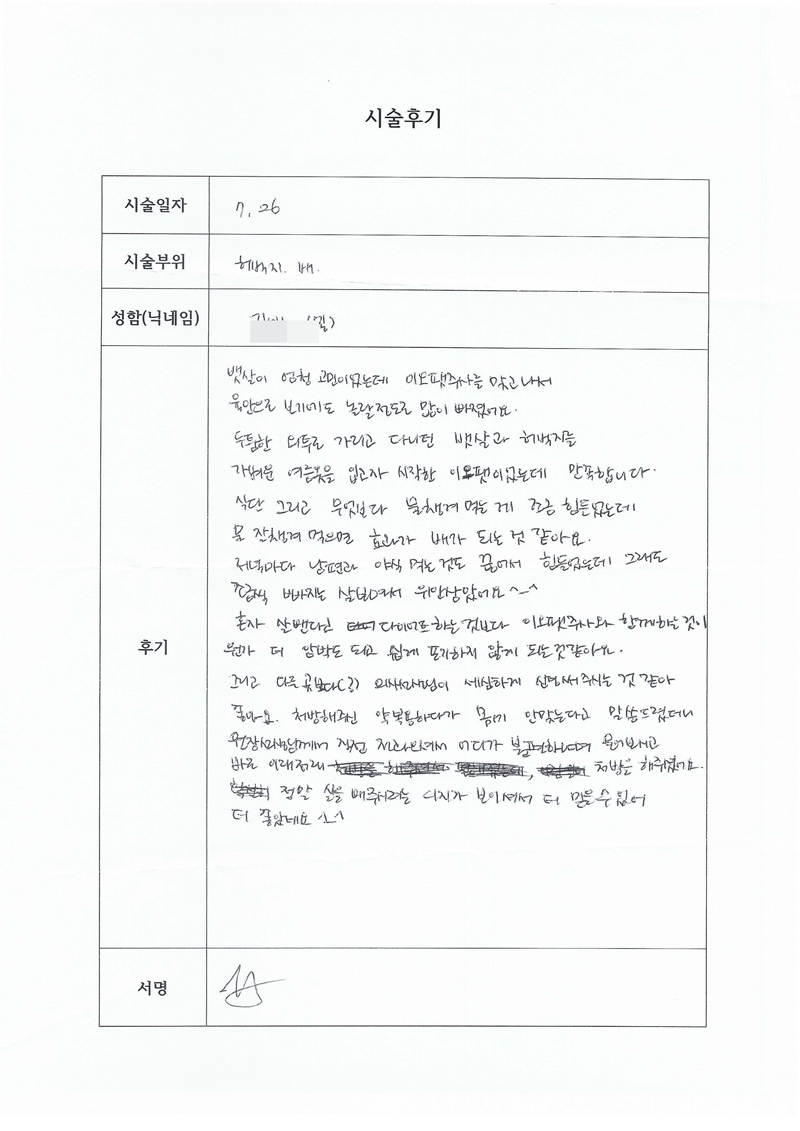 시술후기
시술일자 7. 26
시술부위 허벅지. 배.
성함(닉네임)
후기
뱃살이 엄청 고민이었는데 이오팻주사를 맞고나서
육안으로 보기에도 놀랄정도로 많이 빠졌어요.
두툼한 외투로 가리고 다니던 뱃살과 허벅지를
가벼운 여름옷을 입고자 시작한 이오팻이었는데 만족합니다.
식단 그리고 무엇보다 물챙겨 먹는 게 조금 힘들었는데
물 잘챙겨 먹으면 효과가 배가 되는 것 같아요.
저녁마다 남편과 야식 먹는것도 끊어서 힘들었는데 그래도
조금씩 빠지는 살보면서 위안삼았어요 ^-^
혼자 살뺀다고 다이어트하는것보다 이오팻주사와 함께하는 것이
뭔가 더 압박도 되고 쉽게 포기하지 않게 되는것같아요.
그리고 다른 곳보다(?) 의사선생님이 세심하게 신경써주시는 것 같아
좋아요. 처방해주신 약복용하다가 몸에 안맞는다고 말씀드렸더니
원장선생님께서 직접 어디가 불편하냐며 물어보시고
바로 이래저래 처방을 해주셨어요.
정말 살을 빼주려는 의지가 보이셔서 더 믿을수있어
더 좋았네요 ^-^
서명